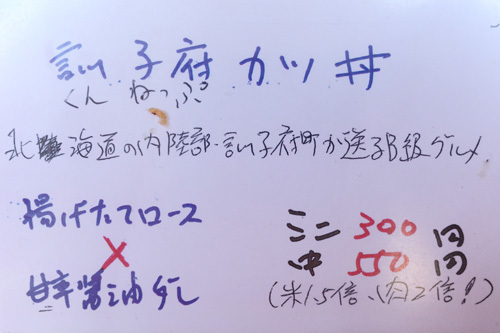 訓子府カツ丼
くんねっぷ
北海道の内陸部・訓子府町が送るB級グルメ
揚げたてロース
×
甘辛醤油ダレ
ミニ 300円
中 550円
(米1.5倍、肉2倍!)